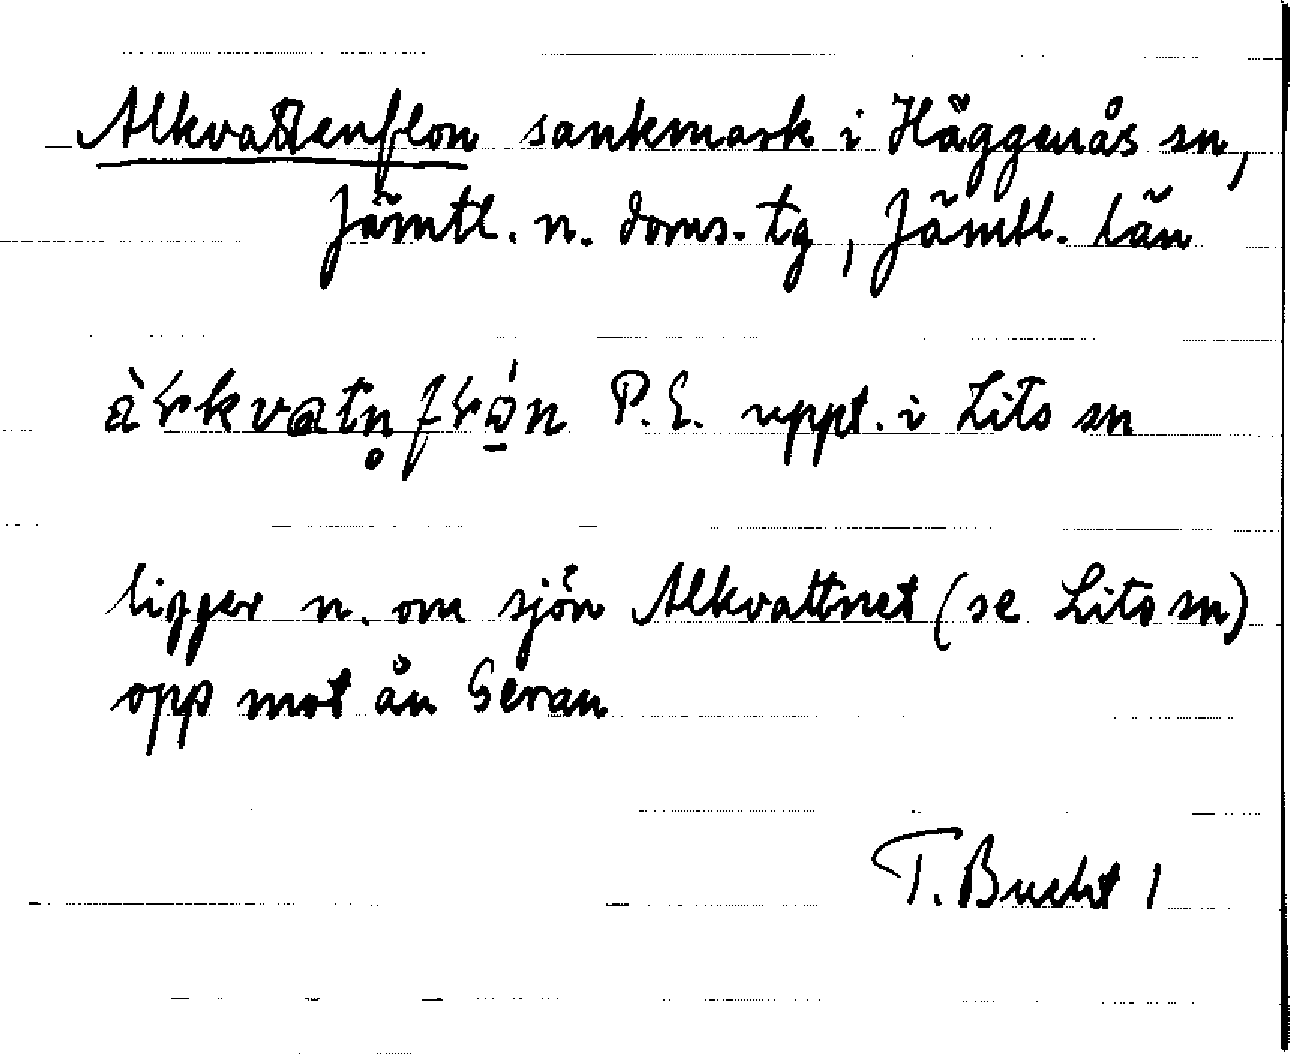 Alkvattenflon sankmark i Häggenås sn,
Jämtl. n. doms. tg, Jämtl. län
P. E. uppt. i Lits sn
ligger n. om sjön Alkvattnet (se Lits sn)
opp mot ån Geran
T. Bucht 1